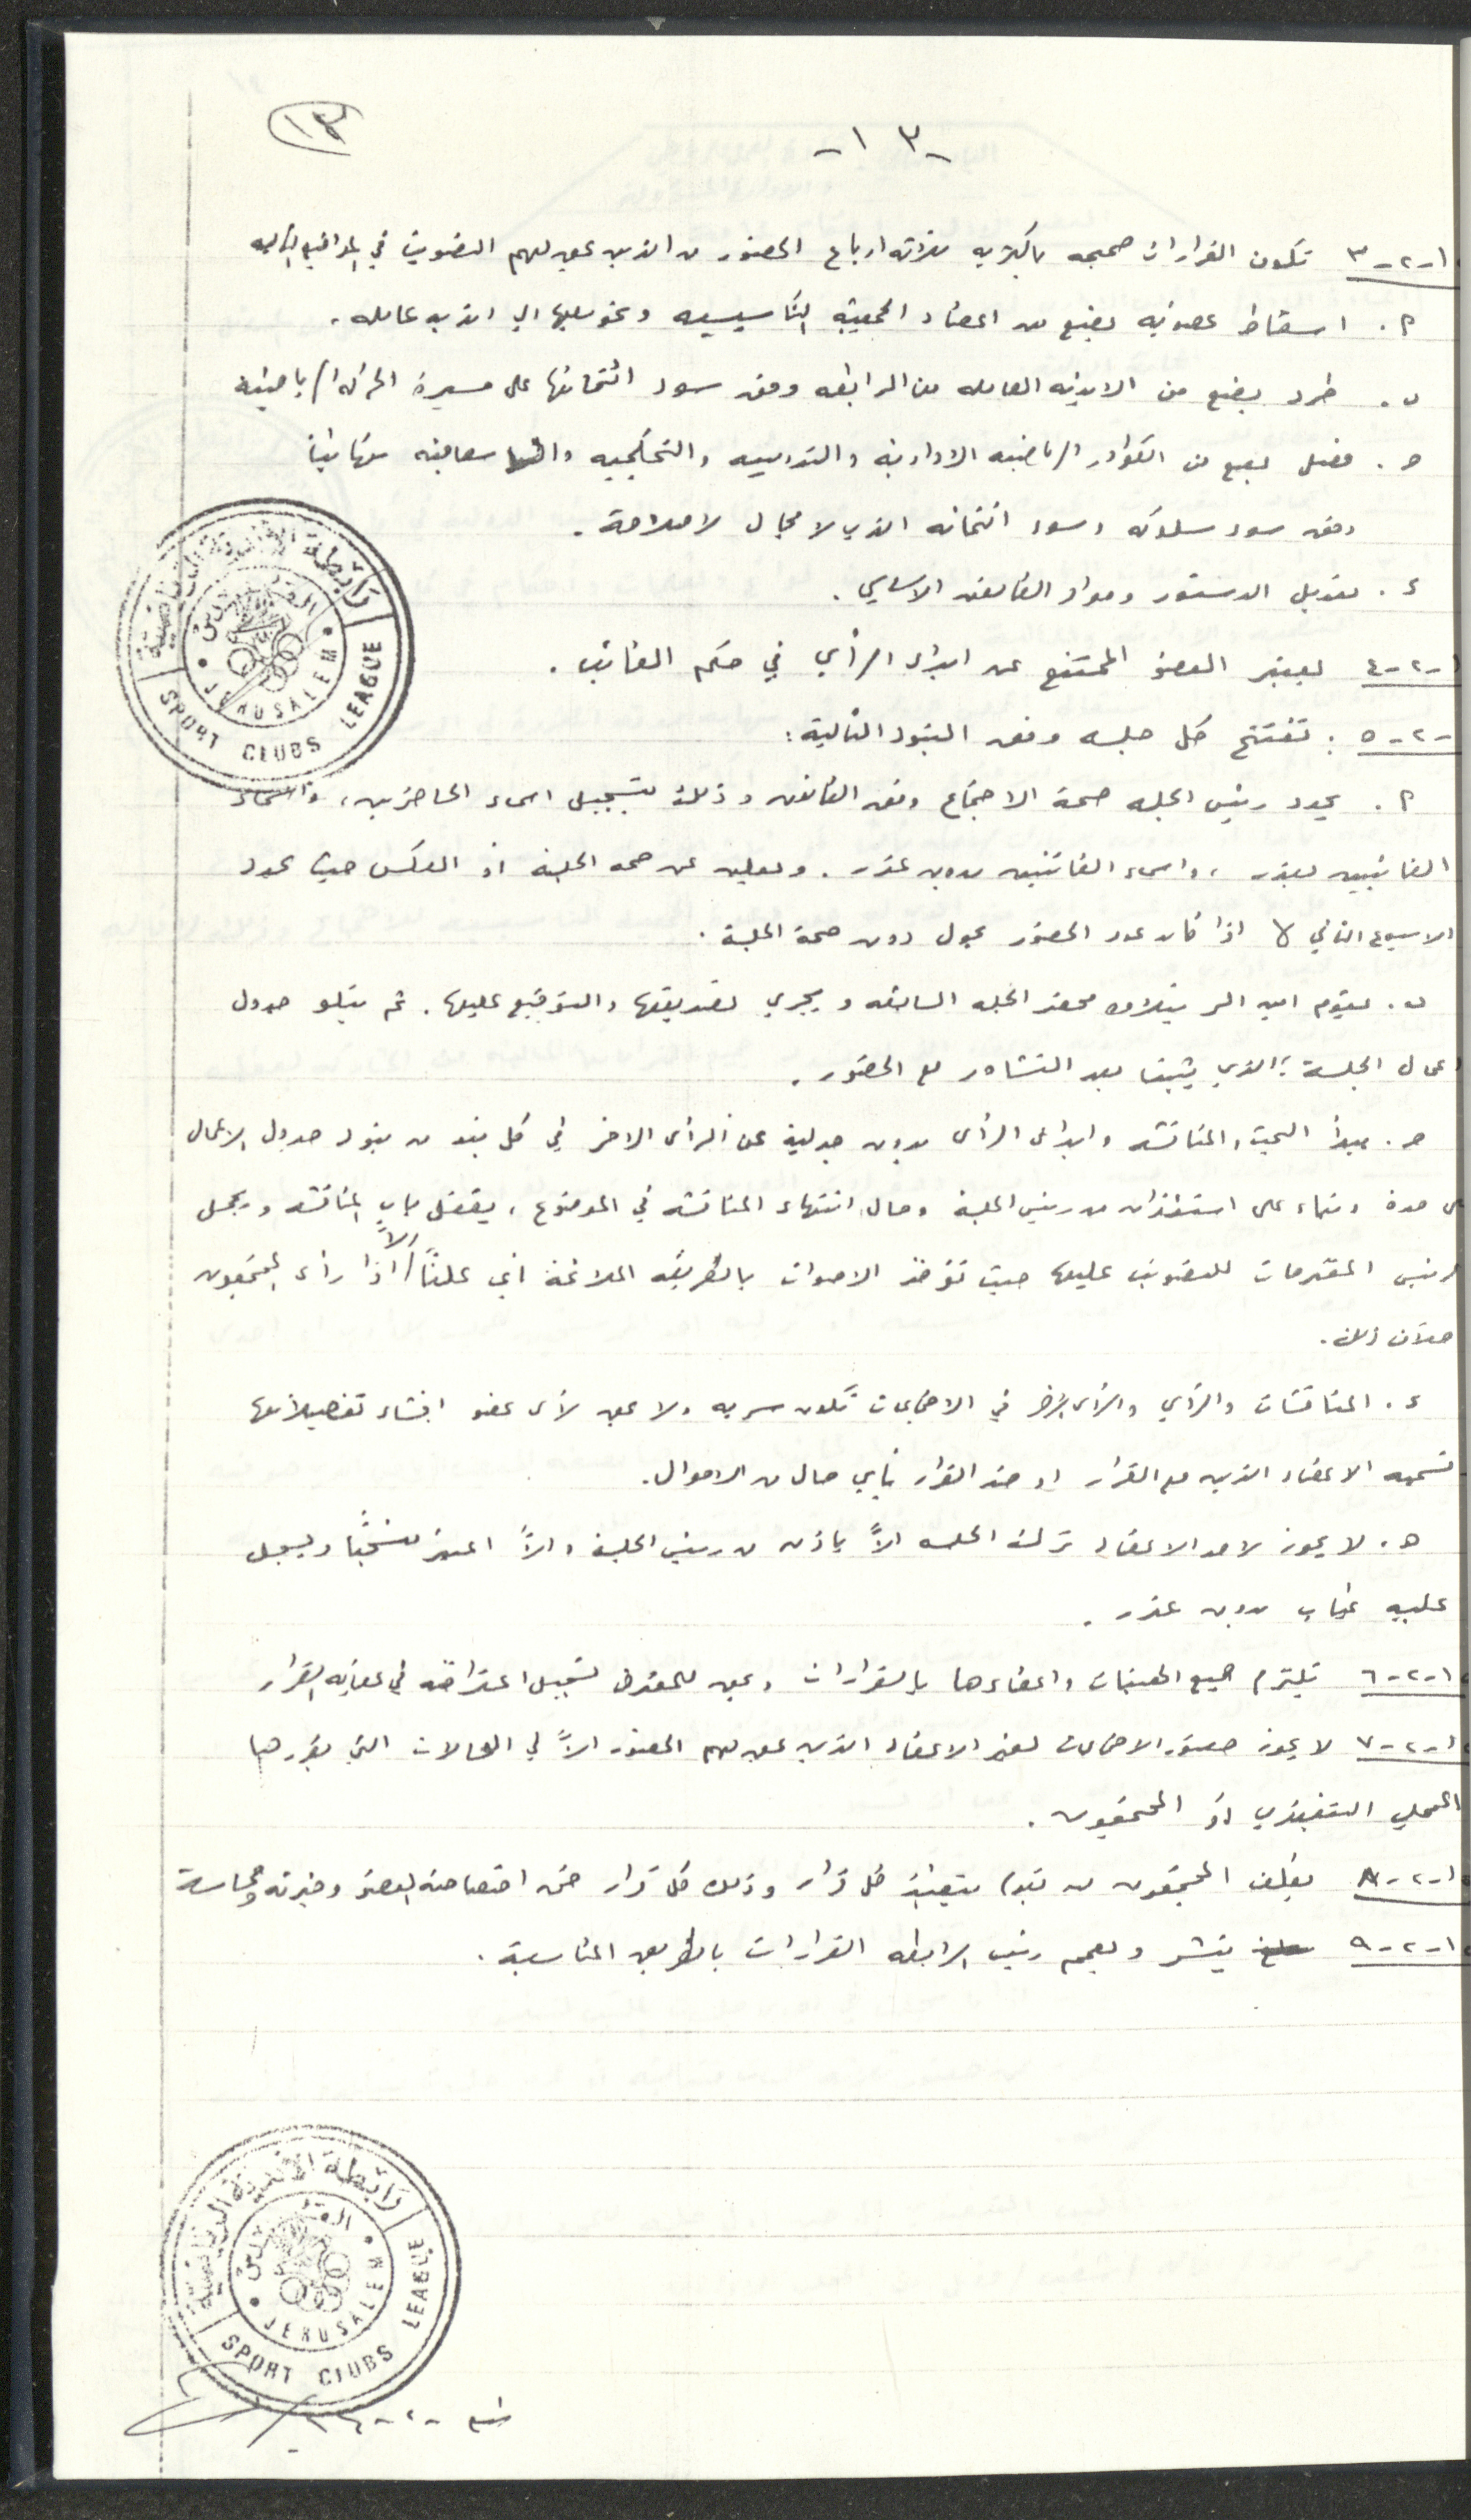 ١٣
-١٣-
١-٢-٣ تكون القرارات صحيحه باكثريه ثلاثه ارباع الحضور من الذين يحق لهم التصويت في المواضيع التاليه
٢. اسقاط عضويه بضع من اعضاء الجمعية التأسيسيه وتحويلها الى انديه عامله.
ب. طرد بضع من الانديه العامله من الرابطه وفق سوء ائتمانها على مسيرة الحركه الرياضيه
ج. فصل بضع من الكوادر الرياضيه الاداريه والتدريبيه والتحكيميه معاقبته نهائيا
وفق سوء سلوكه وسوء ائتمانه الذي لا مجال لاصلاحة.
د. تعديل الدستور ومواد القانون الاساسي.
١-٢-٤ يعتبر العضو الممتنع عن ابداء الرأي في حكم الغائب.
-٢-٥. تفتتح كل جلسه وفق البنود التالية:
٢. يحدد رئيس الجلسه صحة الاجتماع وفق القانون وذلك بتسجيل اسماء الحاضرين، واسماء
الغائبين بعذر، واسماء الغائبين بدون عذر. ويعلن عن صحه الجلسة او العكس حيث يحدد
الاسبوع الثاني لا اذا كان عدد الحضور يحول دون صحة الجلسة.
ب. يقوم امين السر بتلاوه محضر الجلسه السابقه ويجري تصديقها والتوقيع عليها. ثم يتلو جدول
اعمال الجلسة؛ الذي يثبت بعد التشاور مع الحضور.
ج. يبدأ البحث والمناقشه وابداء الرأى بدون جدلية عن الرأى الاخر في كل بند من بنود جدول الاعمال
على حدة وبناء على استئذان من رئيس الجلسة وحال انتهاء المناقشه في الموضوع، يقفل باب المناقشه ويجمل
الرئيس المقترحات للتصويت عليها حيث تؤخذ الاصوات بالطريقه الملائمة اي علناً الاّ اذا رأى المجتمعون
خلاف ذلك.
د. المناقشات والرأي والرأى الاخر في الاجتماعات تكون سريه ولا يحق لأى عضو افشاء تفصيلاتها
تسميه الاعضاء الذين مع القرار او ضد القرار بأي حال من الاحوال.
ه. لا يجوز لاحد الاعضاء ترك الجلسه الاّ باذن من رئيس الجلسة والاّ اعتبر منسحباً ويسجل
عليه غياب بدون عذر.
١-٢-٦ تلتزم جميع الهيئات واعضاءها بالقرارات ويحق للمعترض تسجيل اعتراضه في القرار
١-٢-٧ لا يجوز حضور الاجتماعات لغير الاعضاء الذين يحق لهم الحضور الاّ في الحالات التي يقررها
المجلس التنفيذي او المجتمعون.
١-٢-٨ يكلف المجتمعون من بتنفيذ كل قرار وذلك كل قرار ضمن اختصاصه العضو وخبرته
١-٢-٩ ينشر ويعمم رئيس الرابطه القرارات بالطريق المناسبة.
رابطة الأندية الرياضية
القدس
JERUSALEM
SPORT CLUBS LEAGUE
رابطة الأندية الرياضية
القدس
JERUSALEM
SPORT CLUBS LEAGUE